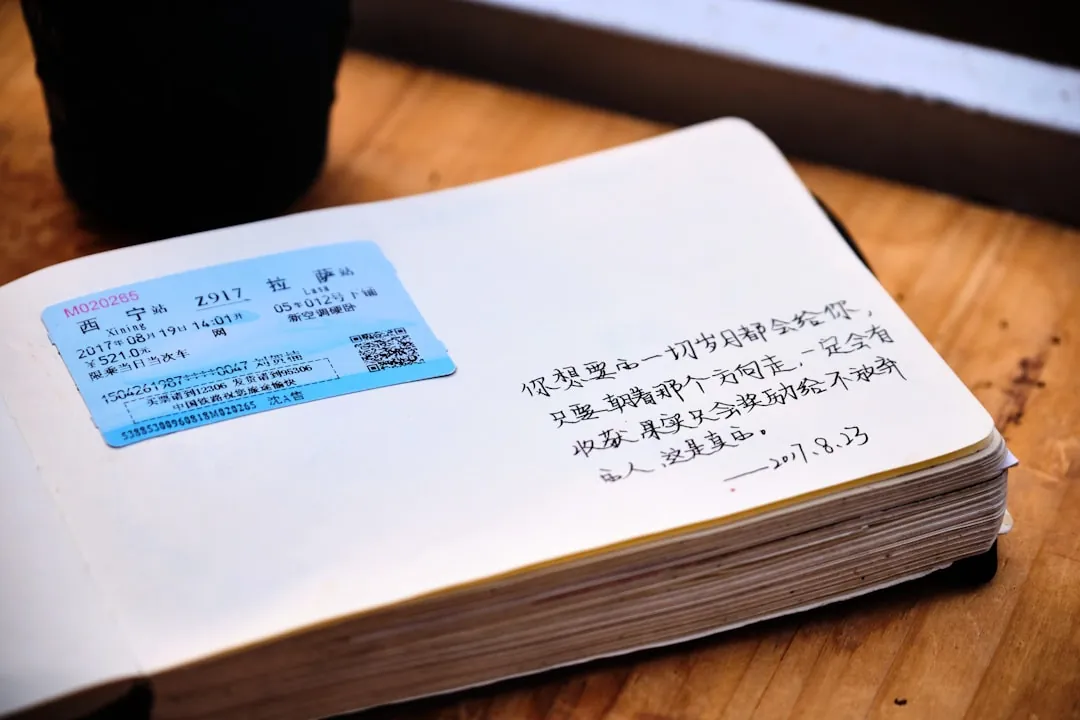 M020265
西 宁站 Z917 拉 萨站
Xining Lasa
2017年08月19日 14:01开 05车012号下铺
¥521.0元 网 新空调硬卧
限乘当日当次车
1504261987****0047 刘贺福
买票请到12306 发货请到95306
中国铁路祝您旅途愉快
53885300960818M020265 沈A售
你想要的一切岁月都会给你，
只要朝着那个方向走，一定会有
收获,果实只会奖励给不放弃
的人,这是真的。
——2017.8.23